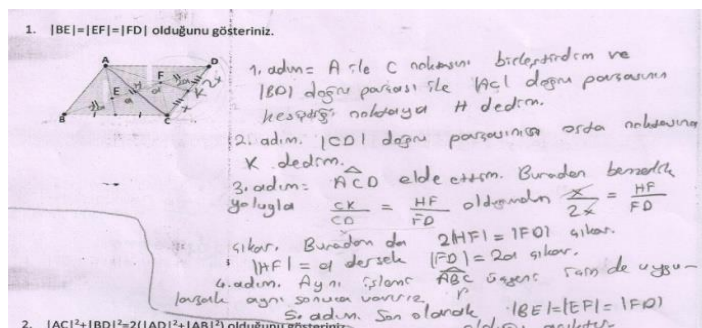 1. |BE|=|EF|=|FD| olduğunu gösteriniz.
A
D
F
H
K
E
B
C
1. adım= A ile C noktasını birleştirdim ve
|BD| doğru parçası ile |AC| doğru parçasının
kesiştiği noktaya H dedim.
2. adım. |CD| doğru parçasının orta noktasına
K dedim.
3. adım= ACD elde ettim. Buradan benzerlik
yoluyla CK/CD = HF/FD olduğundan x/2x = HF/FD
çıkar. Buradan da 2|HF| = |FD| çıkar.
|HF| = a dersek |FD| = 2a çıkar.
4. adım. Aynı işlemi ABC üçgeni için de uygu-
larsak aynı sonuca varırız.
5. adım. Son olarak |BE|=|EF|=|FD|
2. |AC|²+|BD|²=2(|AD|²+|AB|²) olduğunu gösteriniz.